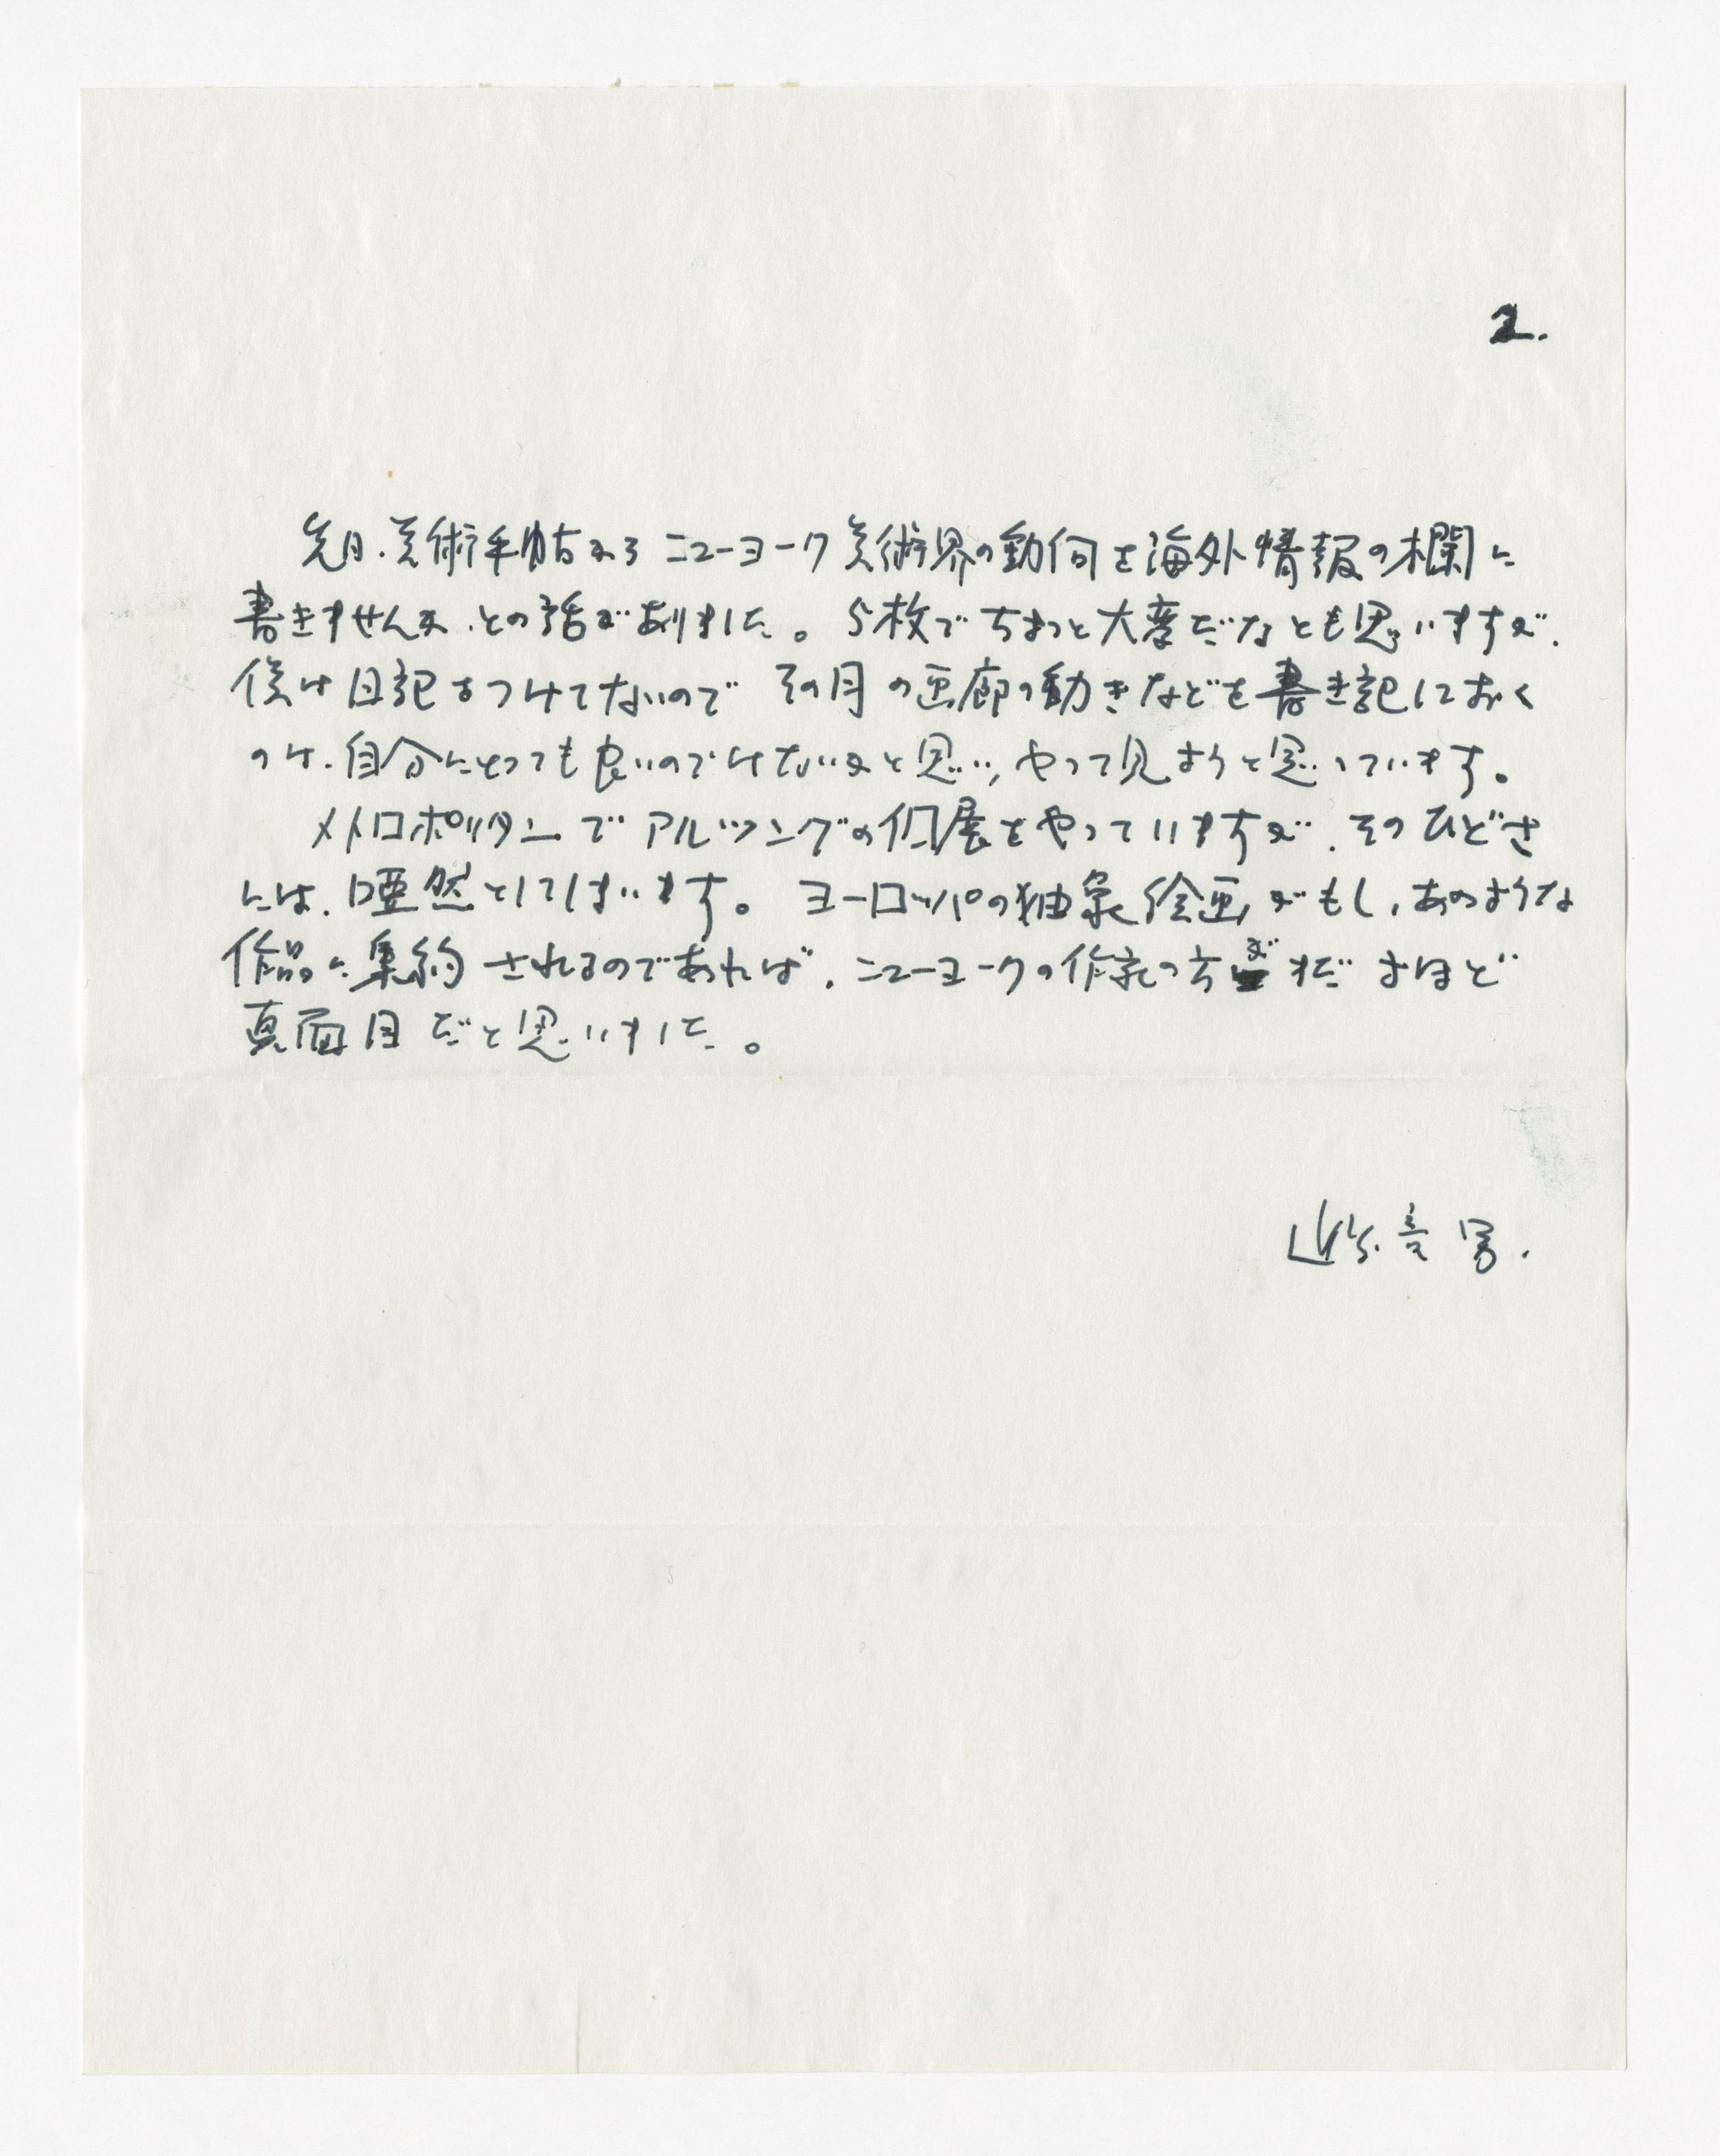 2.
先日.美術手帖から ニューヨーク美術界の動向を海外情報の欄に
書きませんか.との話がありました。 5枚でちょっと大変だなとも思いますが.
僕は日記をつけてないので その月の画廊の動きなどを書き記しておく
のは.自分にとっても良いのではないかと思い、やって見ようと思っています。
メトロポリタンで アルツングの個展をやっていますが.そのひどさ
には.唖然としてしまいます。 ヨーロッパの抽象絵画がもし、あのような
作品に集約されるのであれば.ニューヨークの作家の方がまだ よほど
真面目だと思いました。
近藤竜男.